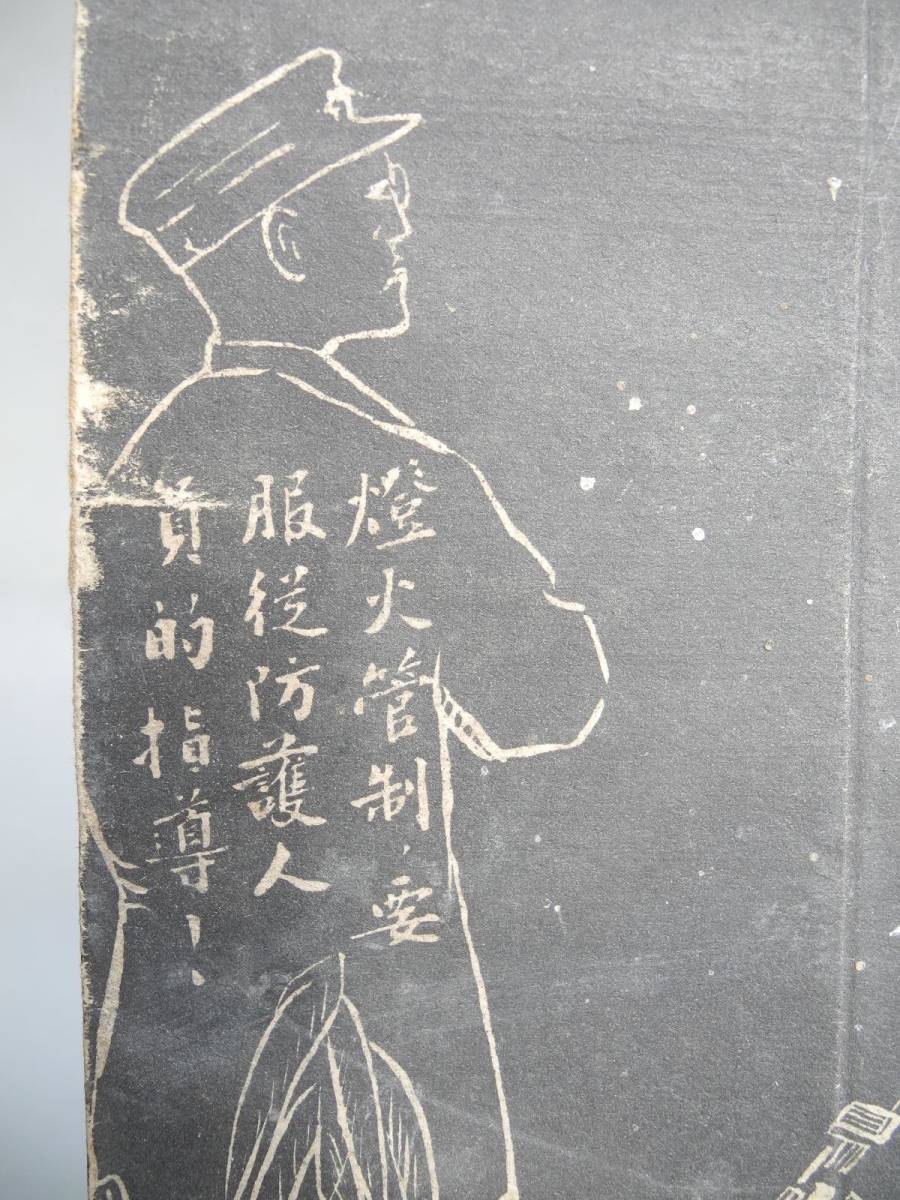 燈火管制,要
服從防護人
員的指導!